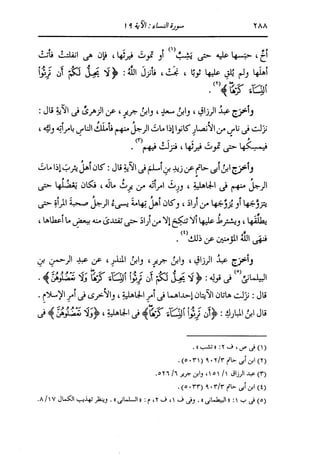 ٢٨٨ سورة النساء : الآية ١٩
أخ ، حبسها عليه حتى يشب(١) أو تموت فيرثها ، فإن هى انفلتت فأتت
أهلها ولم يُلق عليها ثوبًا ، نجت ، فأنزل الله : ﴿لَا يَحِلُّ لَكُمْ أَن تَرِثُوا
النِّسَاءَ كَرْهًا﴾(٢) .
وأخرج عبد الرزاق ، وابن سعد ، وابن جرير ، عن الزهرى فى الآية قال :
نزلت فى ناس من الأنصار كانوا إذا مات الرجل منهم فأملك الناس بامرأته وليه ،
فيمسكها حتى تموت فيرثها ، فنزلت فيهم(٣) .
وأخرج ابن أبى حاتم عن زيد بن أسلم فى الآية قال : كان أهل يثرب إذا مات
الرجل منهم فى الجاهلية ، ورث امرأته من يرث ماله ، فكان يعضلها حتى
يتزوجها أو يزوجها من أراد ، وكان أهل تهامة يسىء الرجل صحبة المرأة حتى
يطلقها ، ويشترط عليها ألا تنكح إلا من أراد حتى تفتدى منه ببعض ما أعطاها ،
فنهى الله المؤمنين عن ذلك(٤) .
وأخرج عبد الرزاق ، وابن جرير ، وابن المنذر ، عن عبد الرحمن بن
البيلمانى(٥) فى قوله : ﴿لَا يَحِلُّ لَكُمْ أَن تَرِثُوا النِّسَاءَ كَرْهًا وَلَا تَعْضُلُوهُنَّ﴾ .
قال : نزلت هاتان الآيتان إحداهما فى أمر الجاهلية ، والأخرى فى أمر الإسلام .
قال ابن المبارك : ﴿أَن تَرِثُوا النِّسَاءَ كَرْهًا﴾ فى الجاهلية ، ﴿وَلَا تَعْضُلُوهُنَّ﴾ فى
(١) فى ص ، ف ٢ : « تشب » .
(٢) ابن أبى حاتم ٩٠٢/٣ (٥٠٣١) .
(٣) عبد الرزاق ١٥١/١ ، وابن جرير ٥٢٦/٦ .
(٤) ابن أبى حاتم ٩٠٢/٣ (٥٠٣٣) .
(٥) فى ب ١ : « البيطمانى » . وفى ف ١ ، ف ٢ ، م : « السلمانى » . وينظر تهذيب الكمال ٨/١٧ .